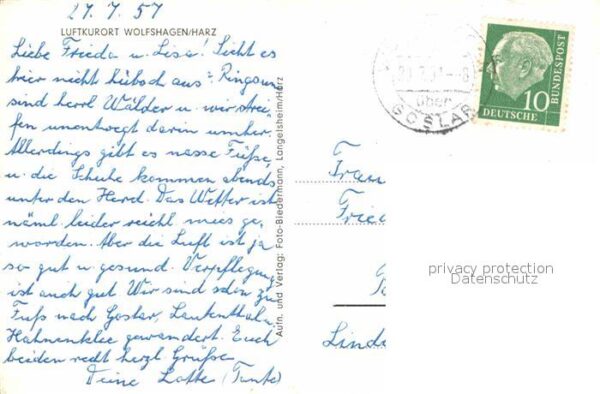 27.7.57
LUFTKURORT WOLFSHAGEN/HARZ
Liebe Frieda u. Lisa! Sieht es
hier nicht hübsch aus? Ringsum
sind herrl Wälder u. wir strei-
fen unentwegt darin umher
Allerdings gibt es nasse Füße,
u. die Schuhe kommen abends
unter den Herd. Das Wetter ist
näml. leider reichl mies ge-
worden. Aber die Luft ist ja
so gut u gesund. Verpflegung
ist auch gut Wir sind schon zu
Fuß nach Goslar, Lautenthal,
Hahnenklee gewandert. Euch
beiden recht herzl Grüße
Deine Lotte (Tante)
Aufn. und Verlag: Foto-Biedermann, Langelsheim/Harz
über
GOSLAR
DEUTSCHE BUNDESPOST
10
Frau
Fried
Linde
privacy protection
Datenschutz